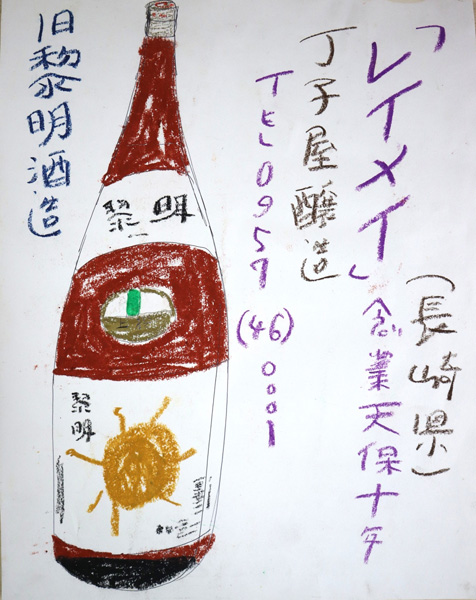 (長崎県)
「レイメイ」創業天保十年
丁子屋醸造
TEL0957(46)0001
黎明
黎明
旧黎明酒造